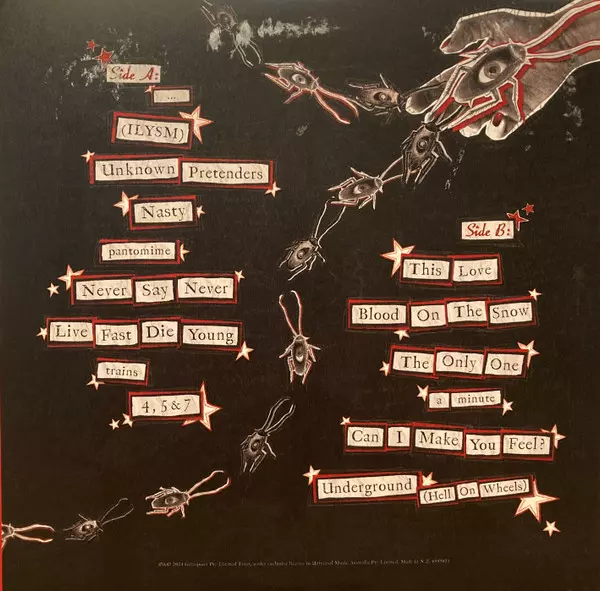 Side A:
...
(ILYSM)
Unknown Pretenders
Nasty
pantomime
Never Say Never
Live Fast Die Young
trains
4, 5 & 7
Side B:
This Love
Blood On The Snow
The Only One
a minute
Can I Make You Feel?
Underground (Hell On Wheels)